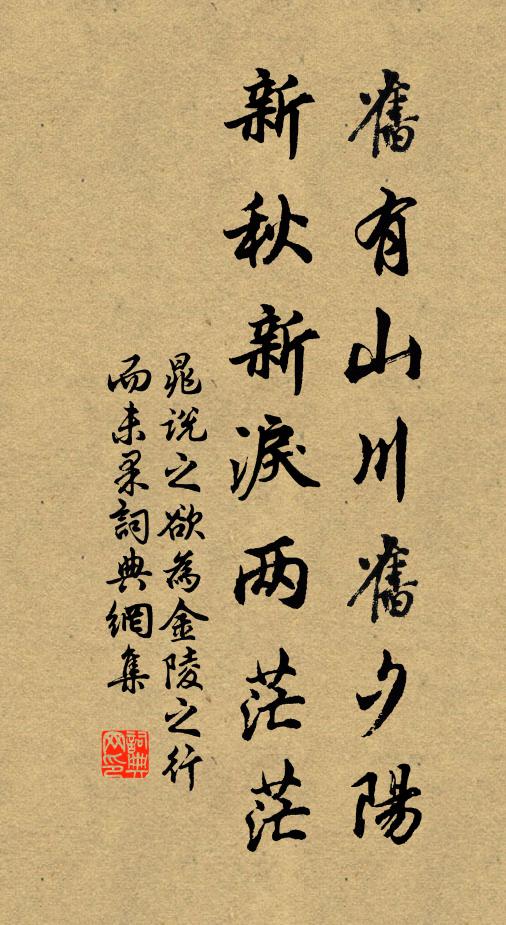 舊有山川舊夕陽
新秋新淚两茫茫
晁說之欲為金陵之行
而未果詞典網集
詞典
网印